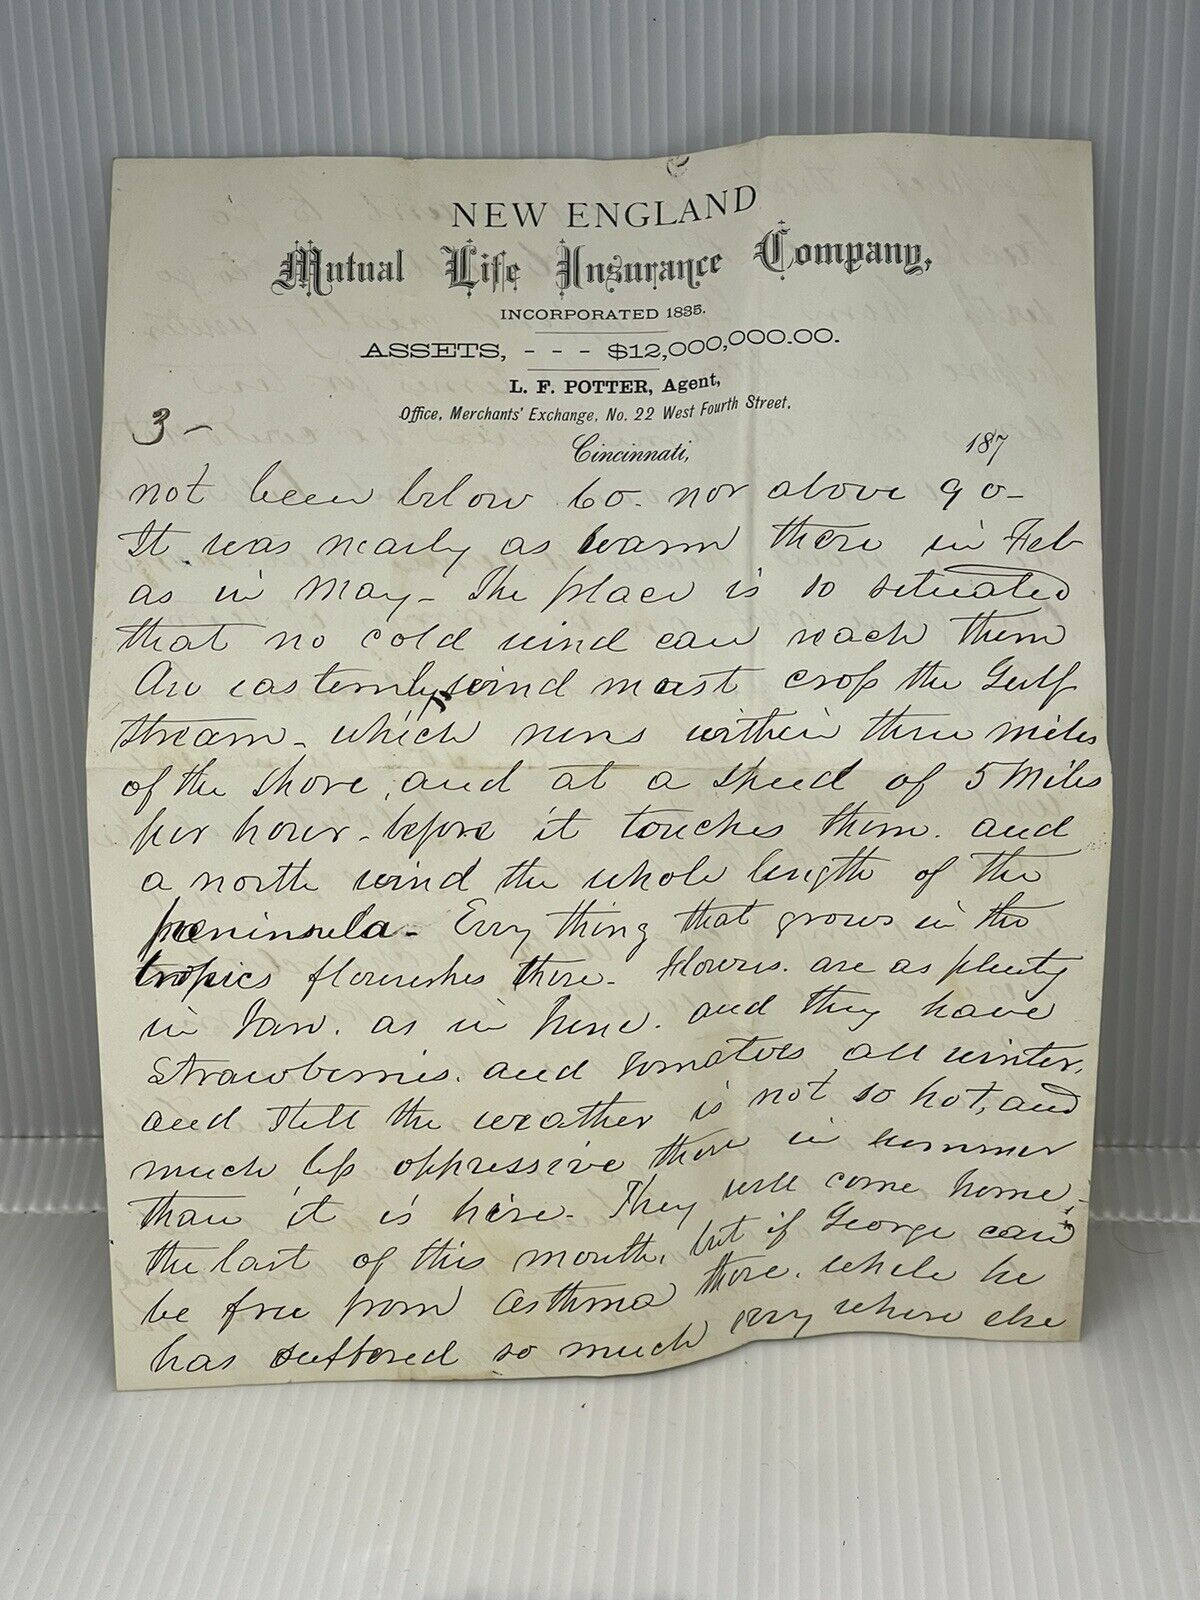 NEW ENGLAND
Mutual Life Insurance Company,
INCORPORATED 1835.
ASSETS, - - - $12,000,000.00.
L. F. POTTER, Agent,
Office, Merchants' Exchange, No. 22 West Fourth Street,
3 -
Cincinnati, 187
not been below 60. nor above 90-
It was nearly as warm there in Feb
as in May- The place is so situated
that no cold wind can reach them
An easternly wind must crop the Gulf
Stream- which runs within three miles
of the shore, and at a speed of 5 Miles
per hour- before it touches them. and
a north wind the whole length of the
peninsula- Every thing that grows in the
tropics flourishes there- Flowers. are as plenty
in Jan. as in June. and they have
Strawberries. and Tomatoes all winter.
and still the weather is not so hot, and
much less oppressive there in summer
than it is here- They will come home-
the last of this month, but if George can
be free from Asthma there. while he
has suffered so much every where else